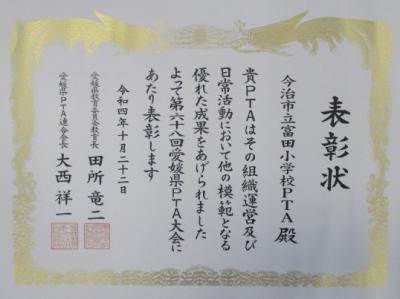 表彰状
今治市立富田小学校PTA 殿
貴PTAはその組織運営及び
日常活動において他の模範となる
優れた成果をあげられました
よって第六十八回愛媛県PTA大会に
あたり表彰します
令和四年十月二十二日
愛媛県教育委員会教育長 田所竜二
愛媛県PTA連合会会長 大西祥一